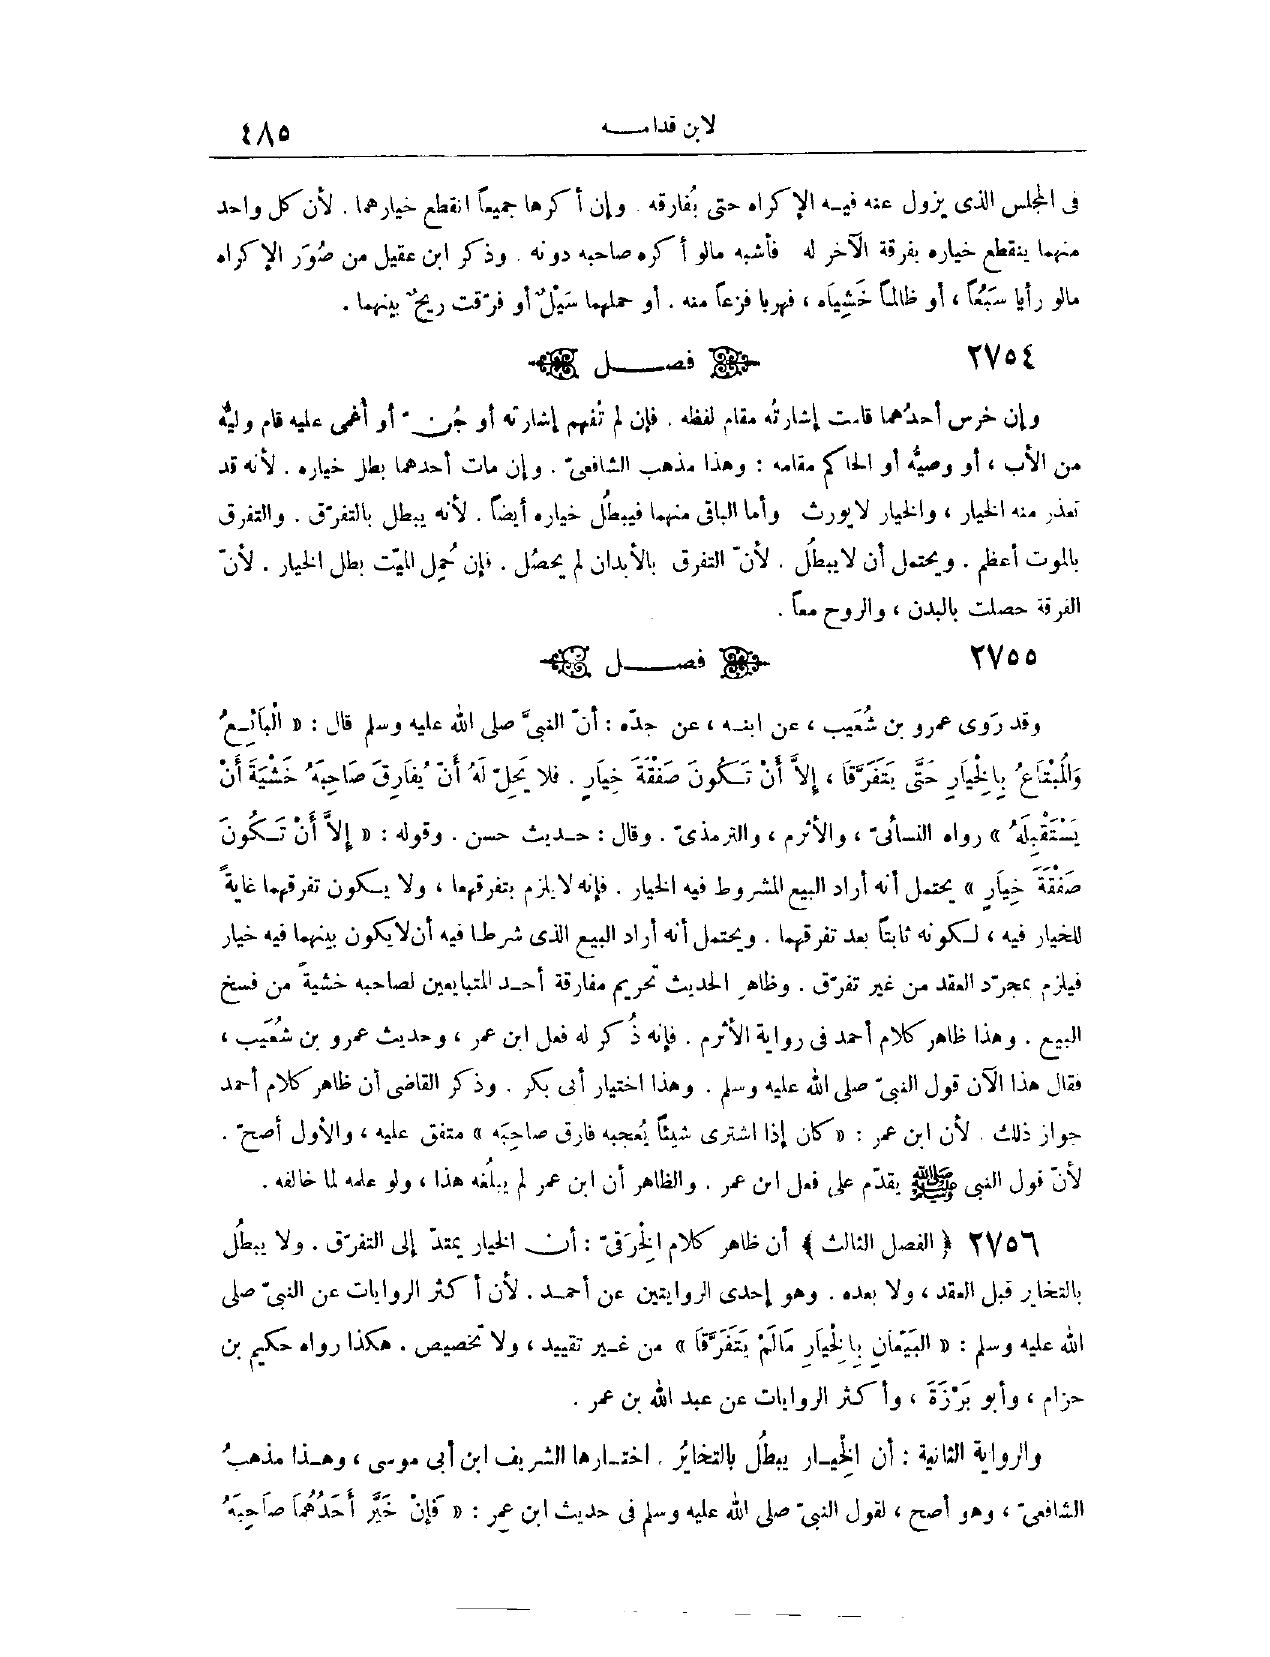 لابن قدامــه
٤٨٥
فى المجلس الذى يزول عنه فيه الإكراه حتى يُفارقه . وإن أكرها جميعاً انقطع خيارهما . لأن كل واحد
منهما ينقطع خياره بفرقة الآخر له فأشبه مالو أكره صاحبه دونه . وذكر ابن عقيل من صُوَر الإكراه
مالو رأيا سَبُعاً ، أو ظالماً خَشِيَاه ، فهربا فزعاً منه . أو حملهما سَيْلٌ أو فرّقت ريحٌ بينهما .
٢٧٥٤ فصــل
وإن خرس أحدُهما قامت إشارتُه مقام لفظه . فإن لم تُفهم إشارته أو جُنّ أو أغمى عليه قام وليُّه
من الأب ، أو وصيُّه أو الحاكم مقامه : وهذا مذهب الشافعىّ . وإن مات أحدهما بطل خياره . لأنه قد
تعذر منه الخيار ، والخيار لايورث وأما الباقى منهما فيبطُل خياره أيضاً . لأنه يبطل بالتفرّق . والتفرق
بالموت أعظم . ويحتمل أن لايبطُل . لأنّ التفرق بالأبدان لم يحصُل . فإن حُمِل الميّت بطل الخيار . لأنّ
الفرقة حصلت بالبدن ، والروح معاً .
٢٧٥٥ فصــل
وقد رَوى عمرو بن شُعَيب ، عن ابنه ، عن جدّه : أنّ النبىَّ صلى الله عليه وسلم قال : « الْبَائِعُ
وَالْمُبْتَاعُ بِالْخِيَارِ حَتَّى يَتَفَرَّقَا ، إلاَّ أَنْ تَكُونَ صَفْقَةَ خِيَارٍ . فلا يَحِلّ لَهُ أَنْ يُفَارِقَ صَاحِبَهُ خَشْيَةَ أَنْ
يَسْتَقْيِلَهُ » رواه النسأئىّ ، والأثرم ، والترمذىّ . وقال : حديث حسن . وقوله : « إلاَّ أَنْ تَكُونَ
صَفْقَةَ خِيَارٍ » يحتمل أنه أراد البيع المشروط فيه الخيار . فإنه لايلزم بتفرقهما ، ولا يكون تفرقهما غايةً
للخيار فيه ، لكونه ثابتاً بعد تفرقهما . ويحتمل أنه أراد البيع الذى شرطا فيه أن لايكون بينهما فيه خيار
فيلزم بمجرّد العقد من غير تفرّق . وظاهر الحديث تحريم مفارقة أحد المتبايعين لصاحبه خشيةً من فسخ
البيع . وهذا ظاهر كلام أحمد فى رواية الأثرم . فإنه ذُكر له فعل ابن عمر ، وحديث عمرو بن شُعَيب ،
فقال هذا الآن قول النبىّ صلى الله عليه وسلم . وهذا اختيار أبى بكر . وذكر القاضى أن ظاهر كلام أحمد
جواز ذلك . لأن ابن عمر : «كان إذا اشترى شيئاً يُعجبه فارق صاحِبَه » متفق عليه ، والأول أصحّ .
لأنّ قول النبى ﷺ يقدّم على فعل ابن عمر . والظاهر أن ابن عمر لم يبلُغه هذا ، ولو علمه لما خالفه .
٢٧٥٦ ﴿ الفصل الثالث ﴾ أن ظاهر كلام الْخِرَقىّ : أن الخيار يمتدّ إلى التفرّق . ولا يبطُل
بالتخاير قبل العقد ، ولا بعده . وهو إحدى الروايتين عن أحمد . لأن أكثر الروايات عن النبىّ صلى
الله عليه وسلم : « البَيِّعَانِ بِالْخِيَارِ مَالَمْ يَتَفَرَّقَا » من غير تقييد ، ولا تخصيص . هكذا رواه حكيم بن
حزام ، وأبو بَرْزَةَ ، وأكثر الروايات عن عبد الله بن عمر .
والرواية الثانية : أن الْخِيار يبطُل بالتخايُر . اختارها الشريف ابن أبى موسى ، وهذا مذهبُ
الشافعىّ ، وهو أصح ، لقول النبىّ صلى الله عليه وسلم فى حديث ابن عمر : « فَإِنْ خَيَّرَ أَحَدُهُمَا صَاحِبَهُ